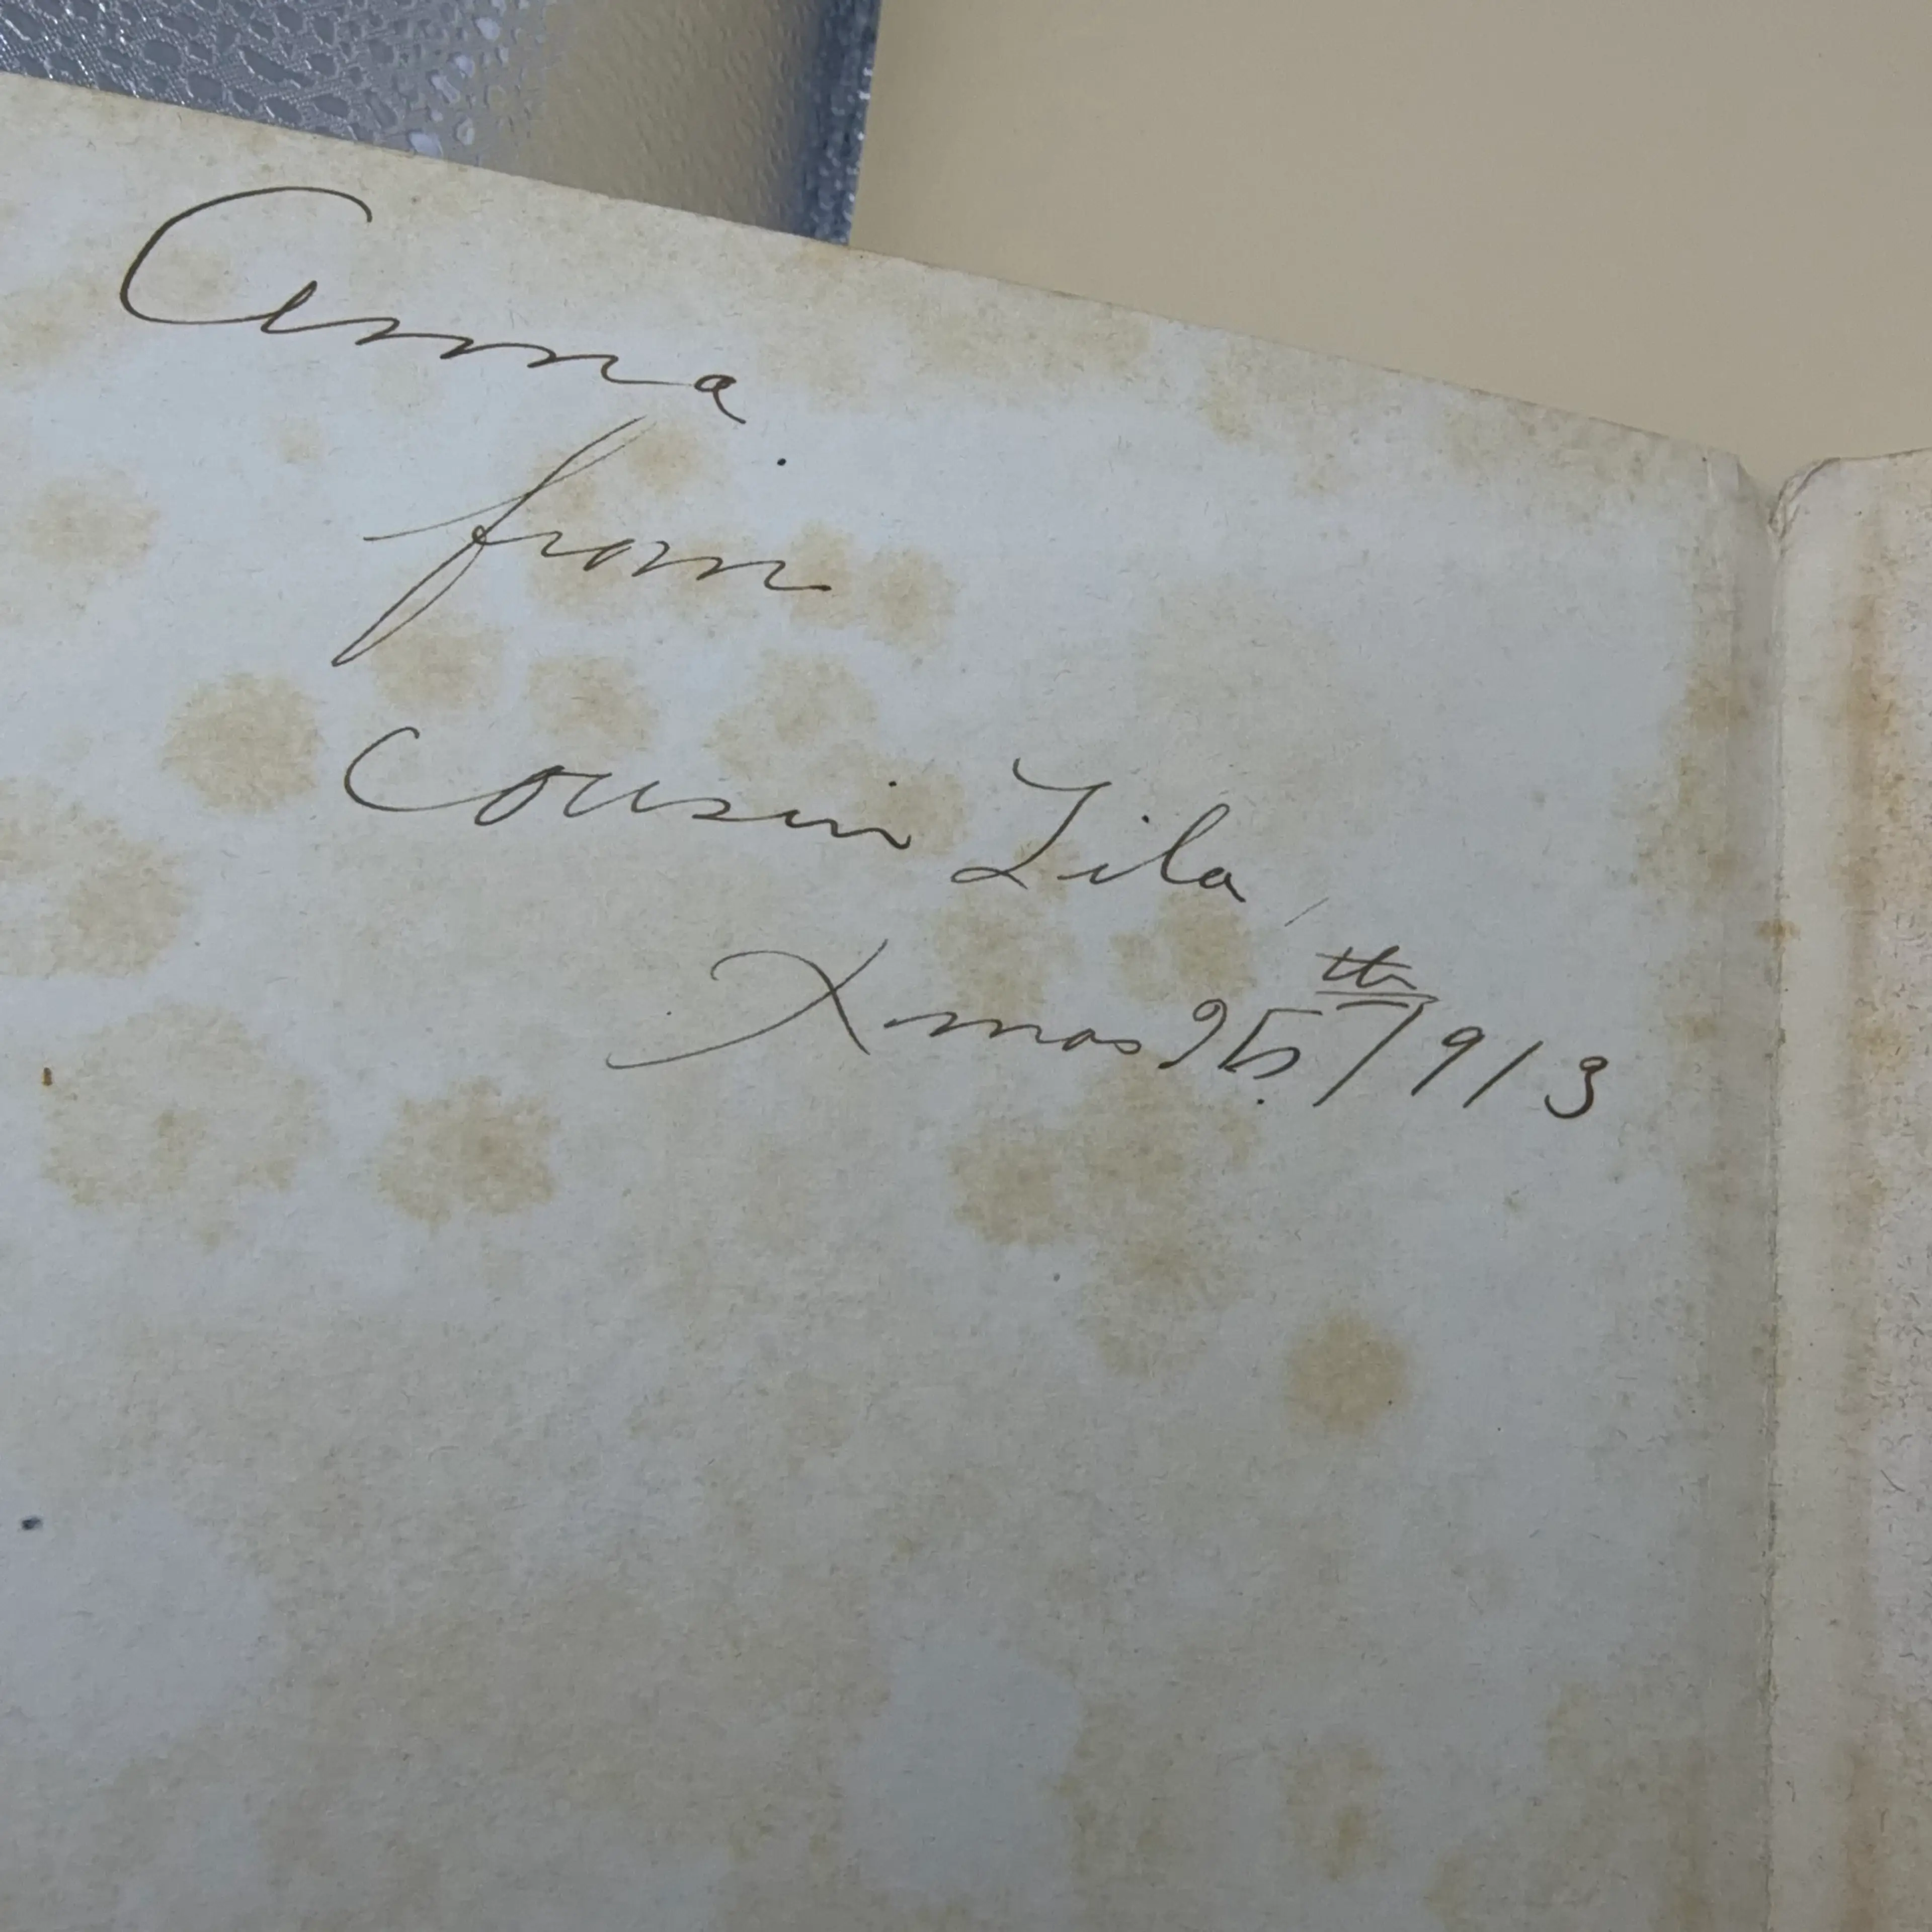 Anna
from
Cousin Lila
Xmas 25th/1913